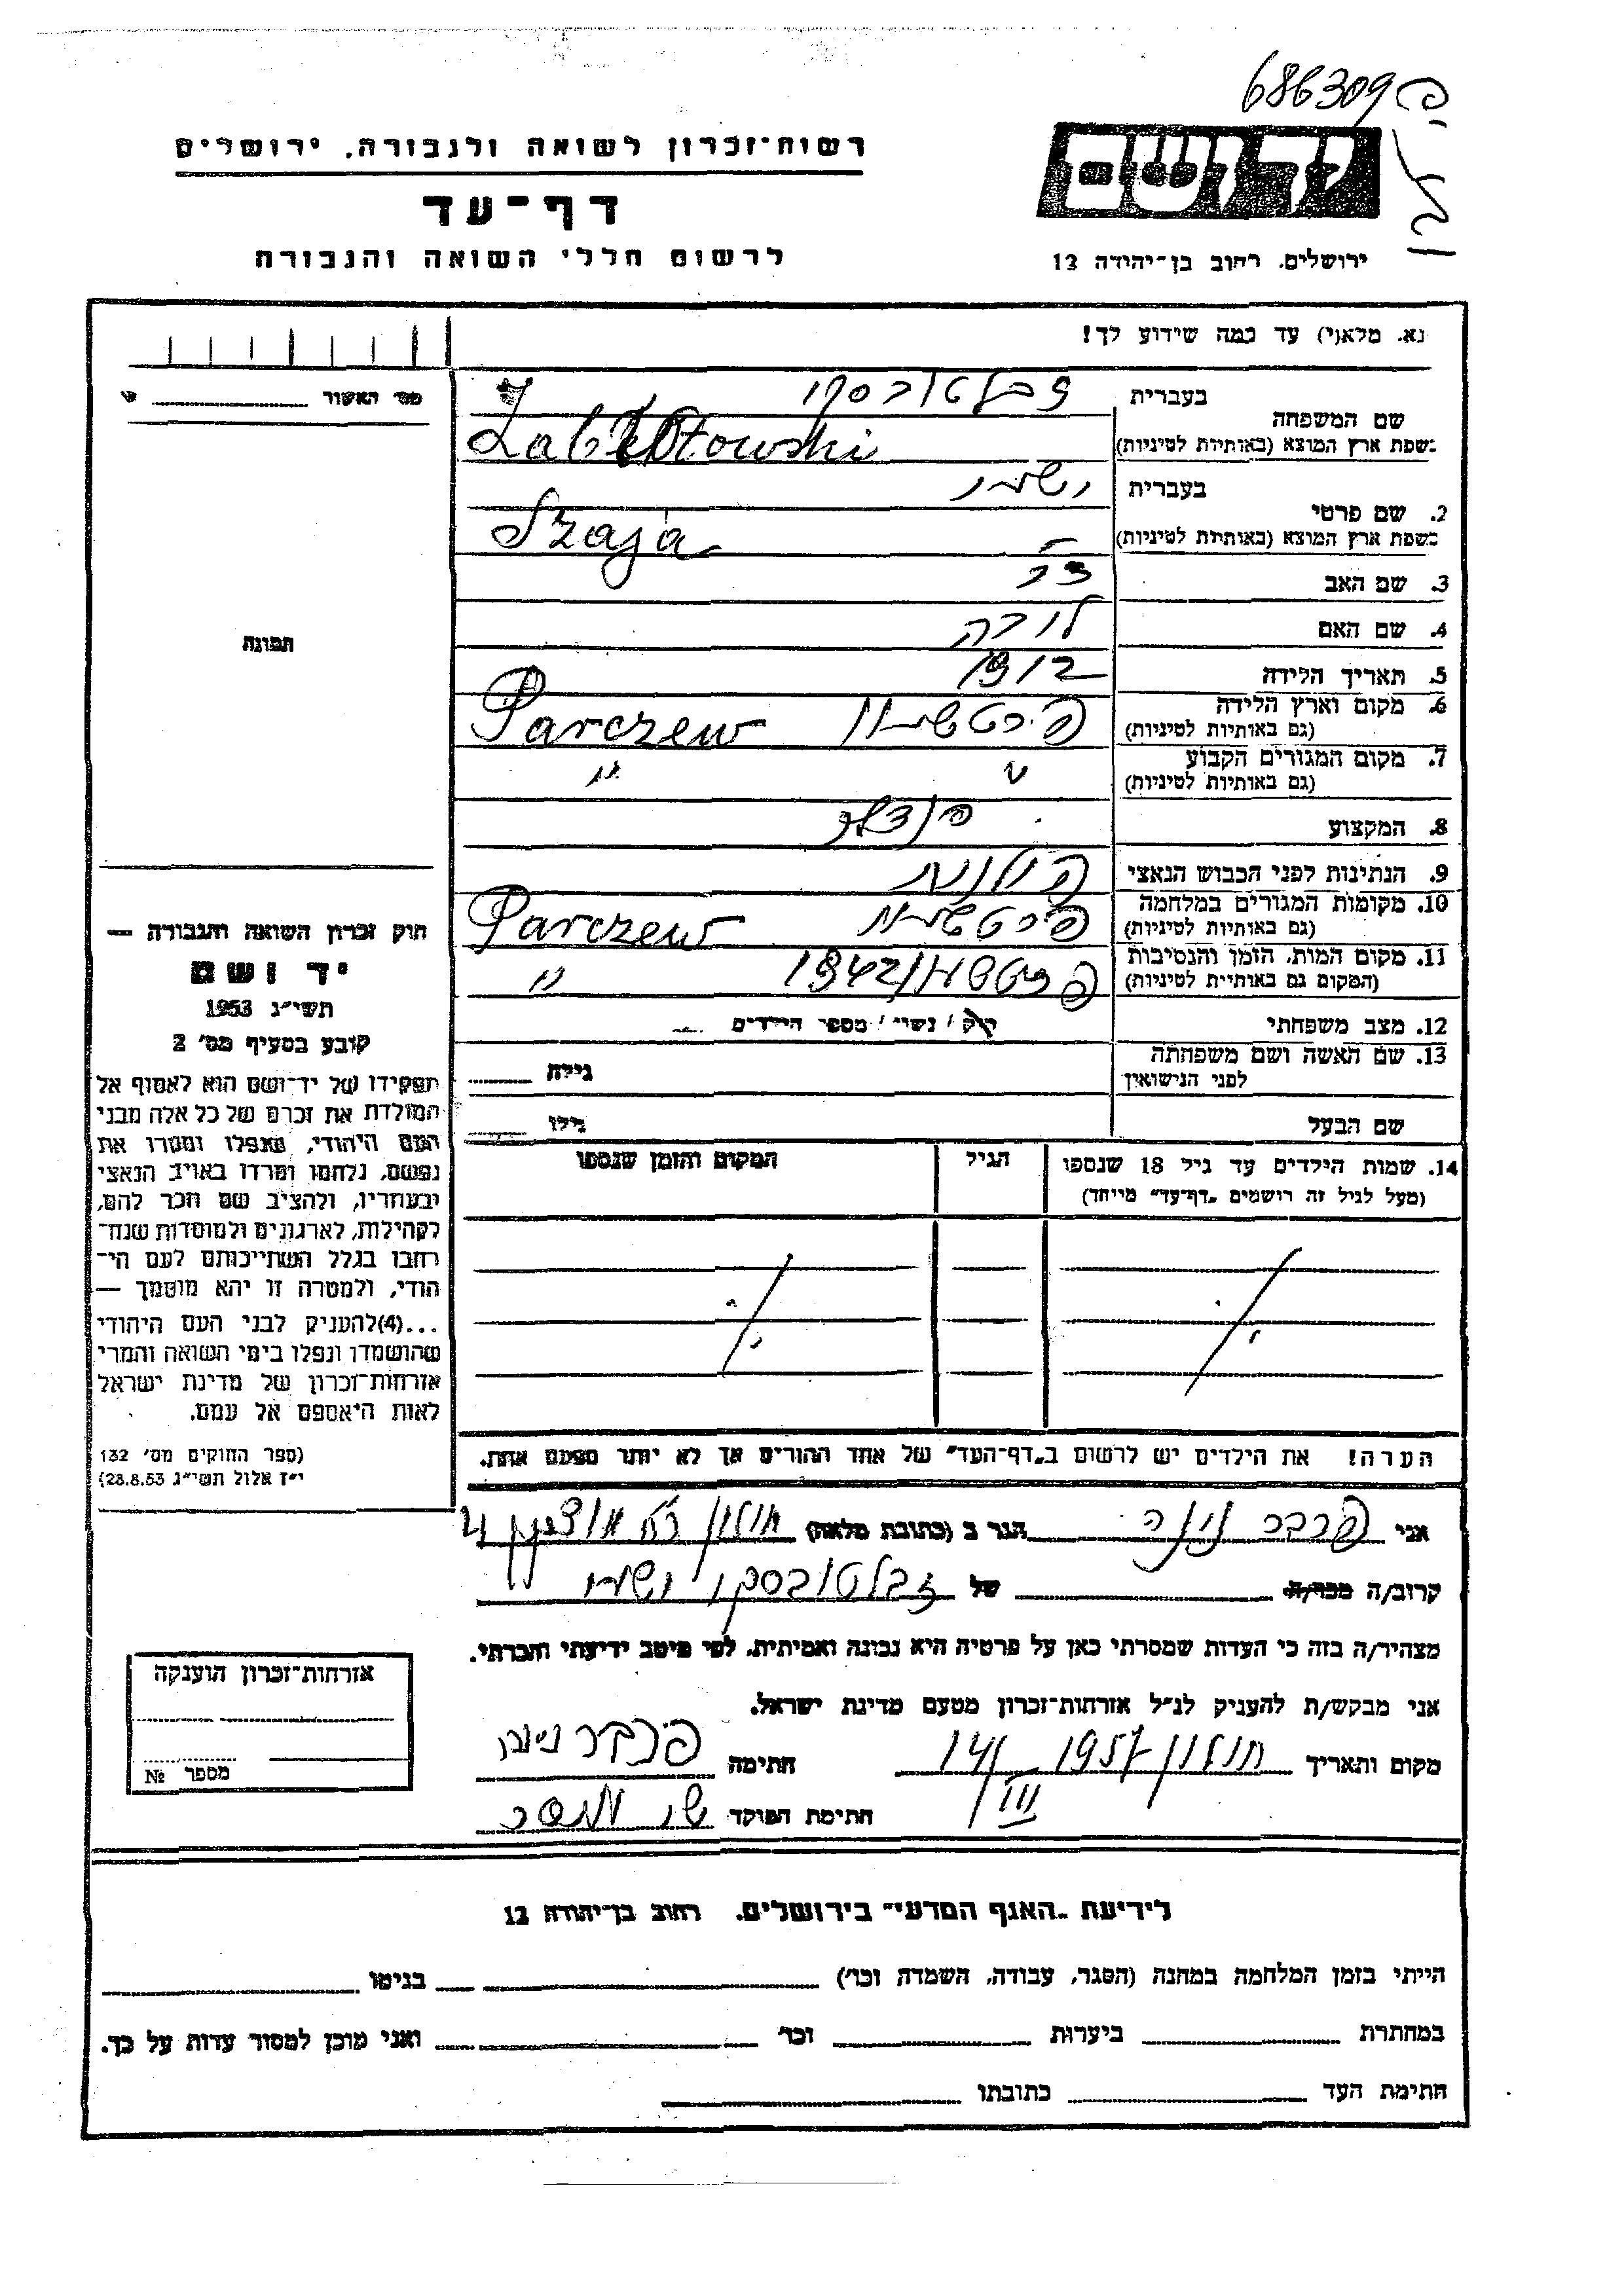 686309
רשות־זכרון לשואה ולגבורה. ירושלים
יד ושם
דף־עד
לרשום חללי השואה והגבורה
ירושלים. רחוב בן־יהודה 12
נא. מלא(י) עד כמה שידוע לך!
מס׳ האשור
שם המשפחה
בעברית זבלטובסקי
בשפת ארץ המוצא (באותיות לטיניות)
2. שם פרטי
בעברית ישעיו
בשפת ארץ המוצא (באותיות לטיניות) Szaja
3. שם האב
4. שם האם
5. תאריך הלידה 1912
6. מקום וארץ הלידה
(גם באותיות לטיניות) Parczew
7. מקום המגורים הקבוע
(גם באותיות לטיניות) " "
8. המקצוע
9. הנתינות לפני הכבוש הנאצי
10. מקומות המגורים במלחמה
(גם באותיות לטיניות) Parczew
11. מקום המות, הזמן והנסיבות 1942
(המקום גם באותיות לטיניות) "
12. מצב משפחתי
רוק / נשוי / מספר הילדים
13. שם האשה ושם משפחתה
לפני הנישואין
גילה
שם הבעל
גילו
14. שמות הילדים עד גיל 18 שנספו
(מעל לגיל זה רושמים „דף־עד״ מייחד)
הגיל
המקום והזמן שנספו
הערה! את הילדים יש לרשום ב„דף־העד״ של אחד ההורים אך לא יותר מפעם אחת.
תמונה
חוק זכרון השואה והגבורה —
יד ושם
תשי״ג 1953
קובע בסעיף מס׳ 2
תפקידו של יד־ושם הוא לאסוף אל
המולדת את זכרם של כל אלה מבני
העם היהודי, שנפלו ומסרו את
נפשם, נלחמו ומרדו באויב הנאצי
ובעוזריו, ולהציב שם וזכר להם,
לקהילות, לארגונים ולמוסדות שנח־
רבו בגלל השתייכותם לעם הי־
הודי, ולמטרה זו יהא מוסמך —
...(4)להעניק לבני העם היהודי
שהושמדו ונפלו בימי השואה והמרי
אזרחות־זכרון של מדינת ישראל
לאות היאספם אל עמם.
(ספר החוקים מס׳ 132
י״ז אלול תשי״ג 28.8.53)
אני פרבר הגר ב (כתובת מלאה) חולון
קרוב/ה מכר/ה של זבלטובסקי ישעיו
מצהיר/ה בזה כי העדות שמסרתי כאן על פרטיה היא נכונה ואמיתית, לפי מיטב ידיעתי והכרתי.
אני מבקש/ת להעניק לנ״ל אזרחות־זכרון מטעם מדינת ישראל.
מקום ותאריך חולון 14/III 1957 חתימה פרבר
חתימת הפוקד
אזרחות־זכרון הוענקה
מספר №
לידיעת „האגף המדעי״ בירושלים. רחוב בן־יהודה 12
הייתי בזמן המלחמה במחנה (הסגר, עבודה, השמדה וכו׳) בגיטו
במחתרת ביערות וכו׳ ואני מוכן למסור עדות על כך.
חתימת העד כתובתו